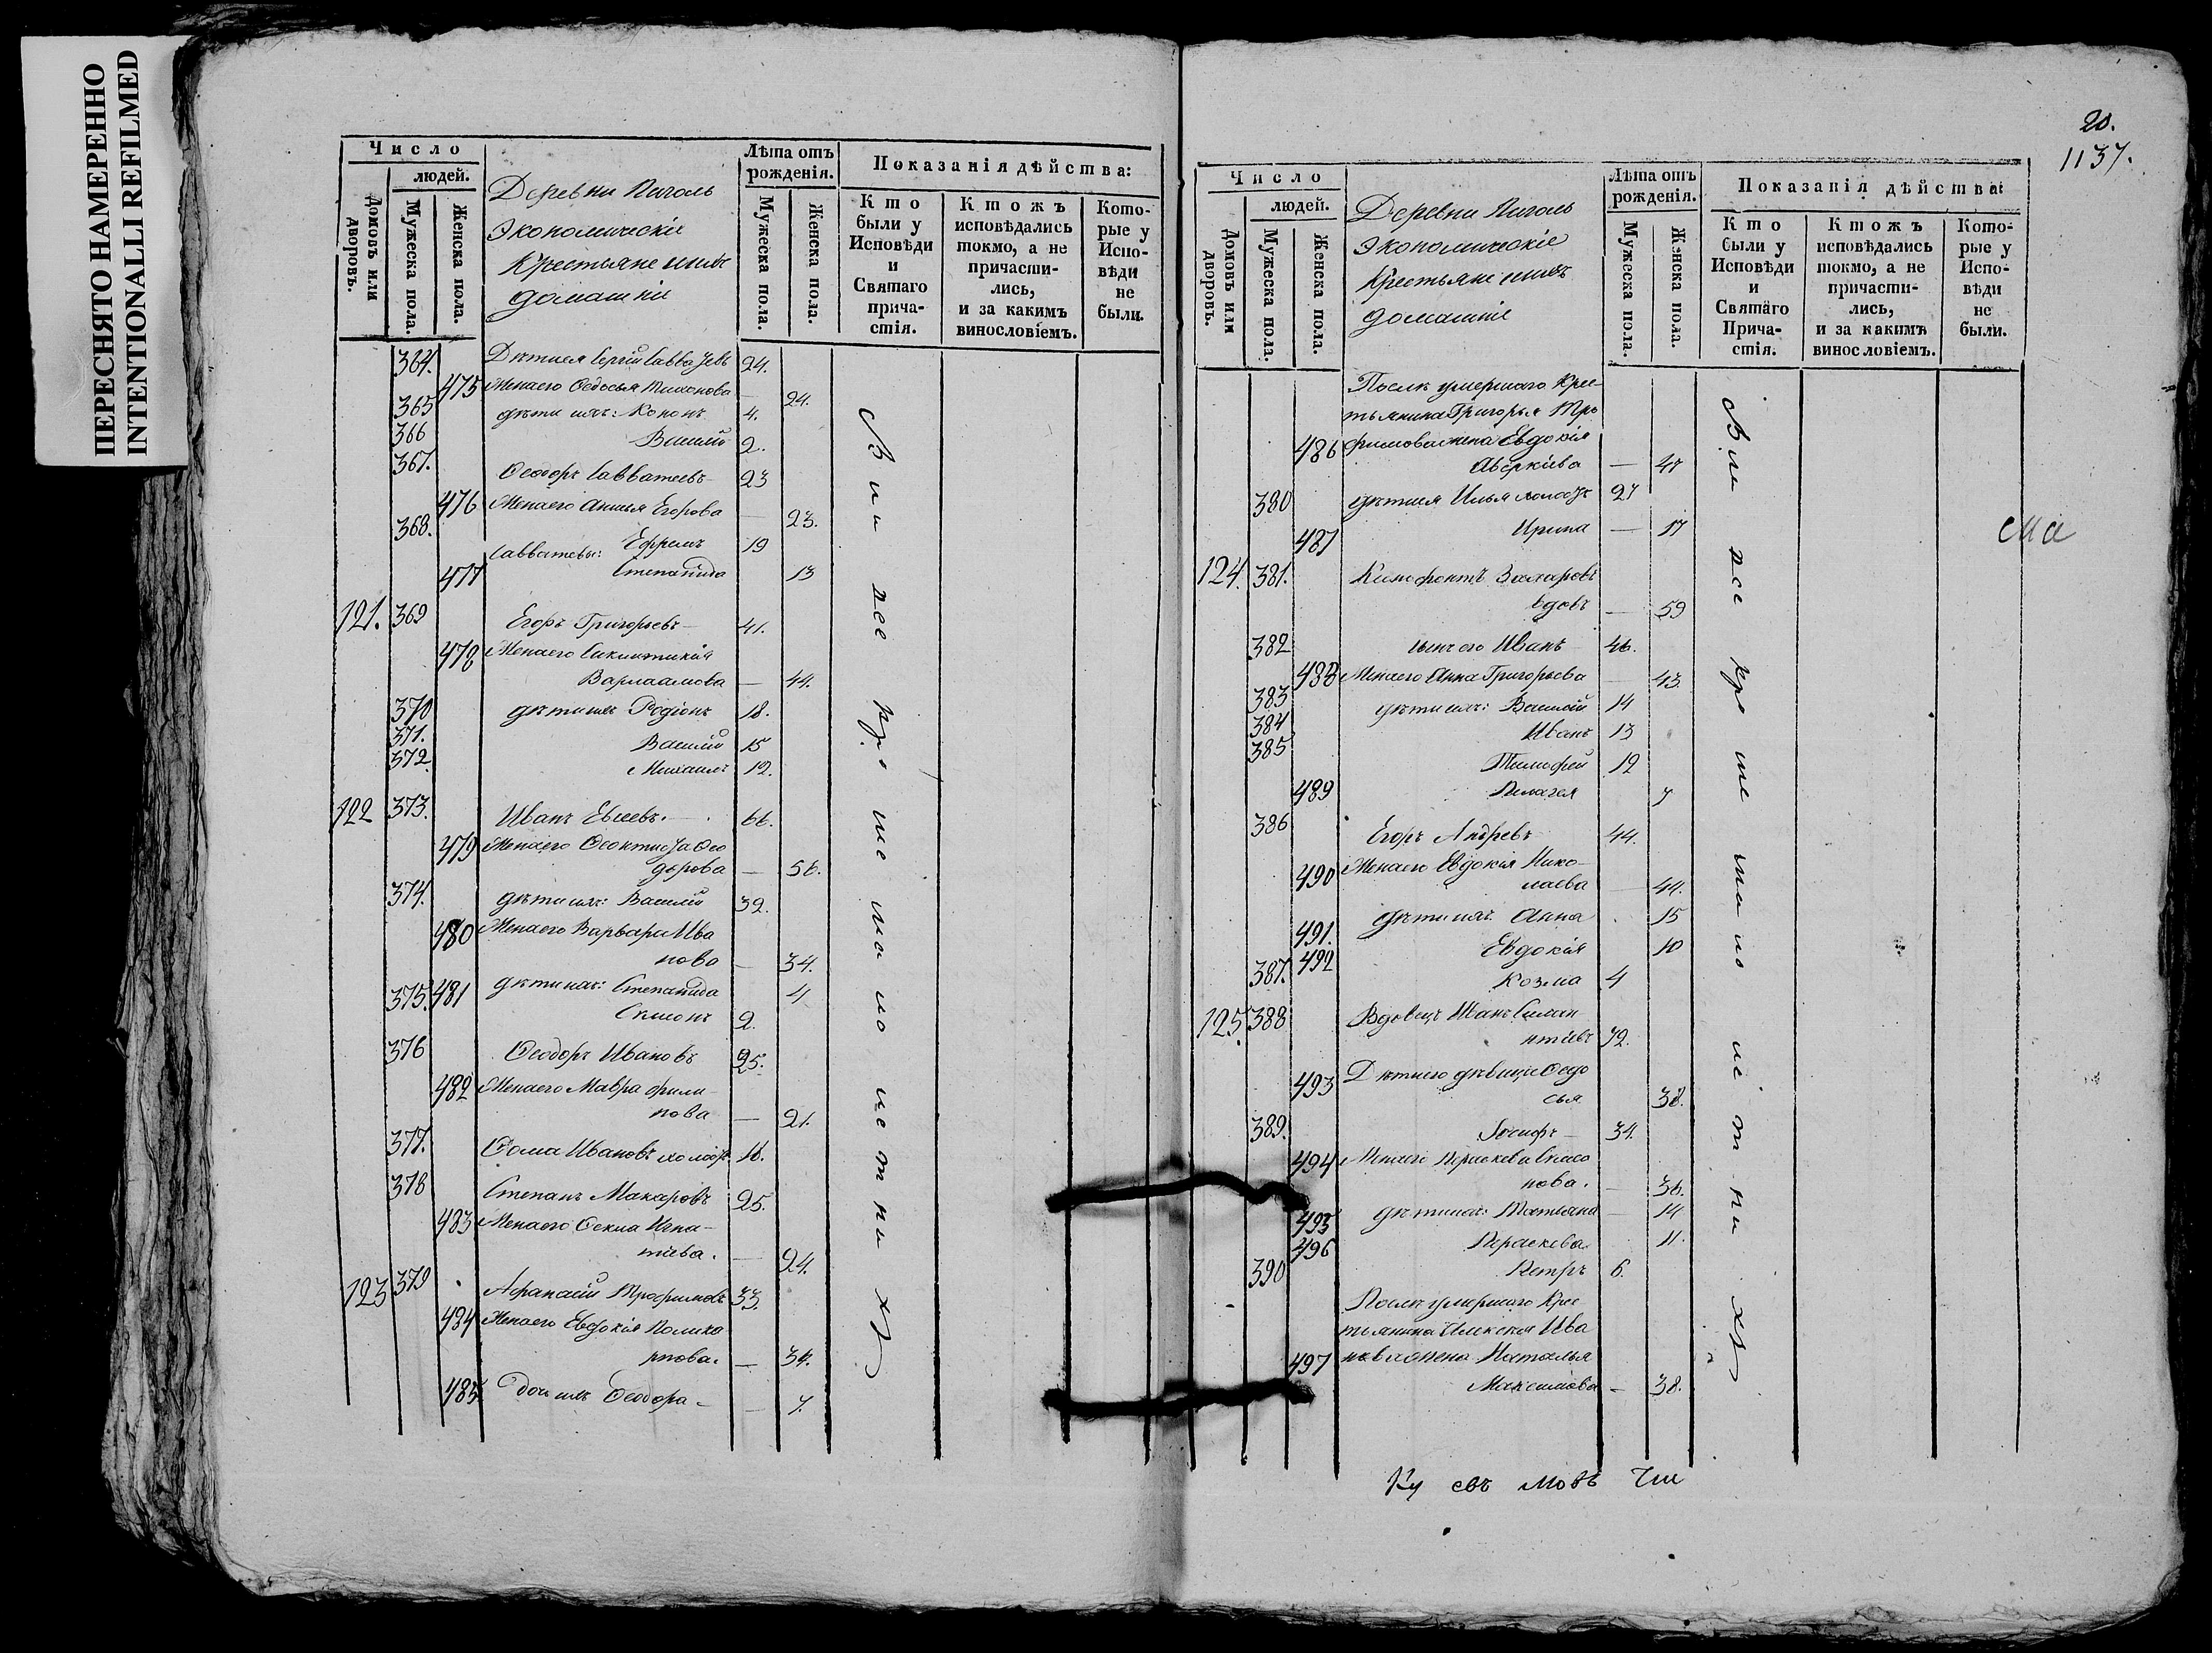 ПЕРЕСНЯТО НАМЕРЕННО
INTENTIONALLI REFILMED
Число
людей.
Домовъ или дворовъ.
Мужеска пола.
Женска пола.
Деревни
Экономическіе
Крестьяне
домашніе
Лѣта отъ рожденія.
Мужеска пола.
Женска пола.
Показанія дѣйства:
Кто были у Исповѣди и Святаго причастія.
Ктожъ исповѣдались токмо, а не причастились, и за какимъ винословіемъ.
Которые у Исповѣди не были.
364. Сергій 24.
475 Жена его Ѳедосья Тихонова — 24.
365 дѣти ихъ: Кононъ 4.
366 Василій 2.
367. Ѳеодоръ Савватеевъ 23
476 Жена его Егорова — 23.
368. Савватеевы: Ефремъ 19
477 Степанида 13
121. 369 Егоръ Григорьевъ 41.
478 Жена его
Варлаамова — 44.
370 дѣти ихъ Родіонъ 18.
371. Василій 15
372. Михаилъ 12.
122 373. Иванъ Евсеевъ 66.
479 Жена его Ѳеоктиста Ѳео
дорова — 56.
374. дѣти ихъ: Василій 32.
480 Жена его Варвара Ива
нова — 34.
481 дѣти ихъ: Степанида 4
375. Симонъ 2.
376 Ѳеодоръ Ивановъ 25.
482 Жена его Мавра Фили
пова — 21.
377. Ѳома Ивановъ холостъ 16.
378 Степанъ Макаровъ 25.
483 Жена его Ѳекла Игна-
тіева. — 24.
123 379 Афанасій Трофимовъ 33.
484 Жена его Евдокія Полика
рпова. — 34.
485 дочь ихъ Ѳеодора — 7.
20.
1137.
Число
людей.
Домовъ или дворовъ.
Мужеска пола.
Женска пола.
Деревни
Экономическіе
Крестьяне
домашніе
Лѣта отъ рожденія.
Мужеска пола.
Женска пола.
Показанія дѣйства:
Кто были у Исповѣди и Святаго Причастія.
Ктожъ исповѣдались токмо, а не причастились, и за какимъ винословіемъ.
Которые у Исповѣди не были.
Послѣ умершаго Крес-
тьянина Григорья Тро
486 фимова жена Евдокія
Аверкіева — 47
380 дѣти ея Илья холостъ 27
487 Ирина — 17
124. 381. Ксенофонтъ Захаровъ
вдовъ — 59
382 сынъ его Иванъ 46.
488 Жена его Анна Григорьева — 43.
383 дѣти ихъ: Василій 14
384 Иванъ 13
385 Тимофей 12
489 Пелагея 7
386 Егоръ Андреевъ 44.
490 Жена его Евдокія Нико-
лаева — 44.
491. дѣти ихъ: Анна 15
492 Евдокія 10
387. Козма 4
125. 388 Вдовецъ Иванъ
72.
493 Дѣти его дѣвица Ѳедо
сья 38.
389. Іосифъ — 34.
494 Жена его Параскева
нова. — 36.
495 дѣти ихъ: Татьяна — 14
496 Параскева 11.
390 Петръ 6.
Послѣ умершаго Крес
тьянина Алексѣя Ива
497 нова жена Наталья
Максимова — 38.